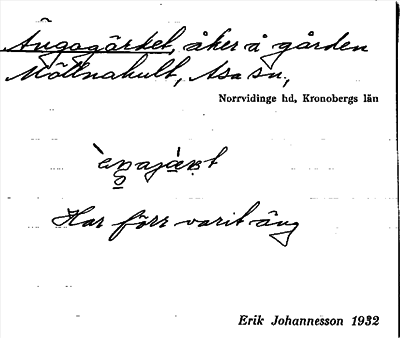 Ängagärdet, åker å gården
Möllnahult, Asa sn.,
Norrvidinge hd, Kronobergs län
Har förr varit äng
Erik Johannesson 1932